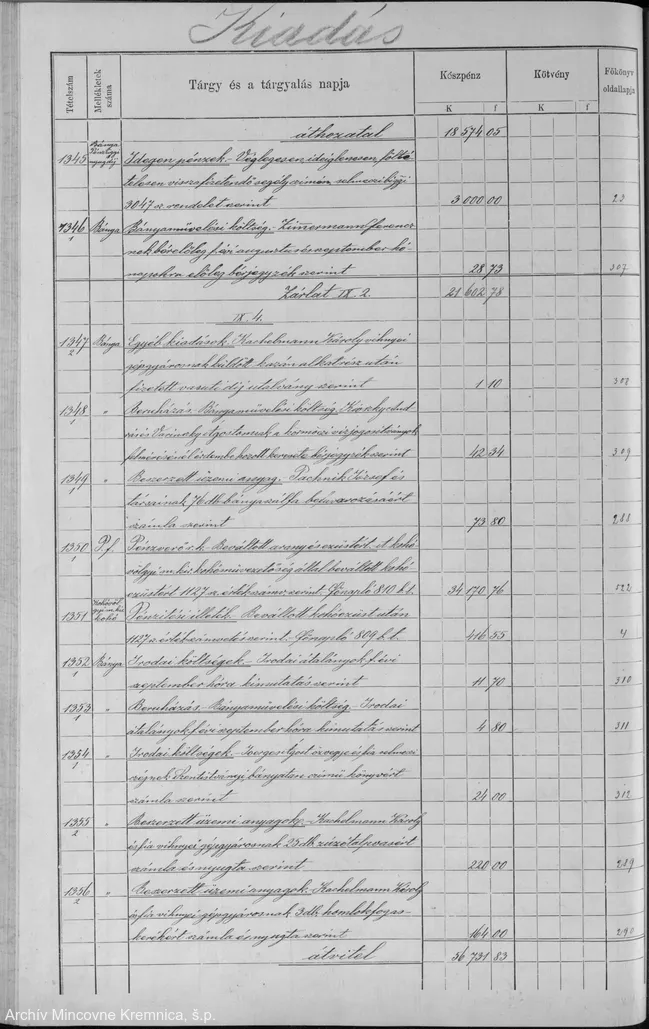 Kiadás
Tételszám
Mellékletek száma
Tárgy és a tárgyalás napja
Készpénz
Kötvény
Főkönyv oldallapja
K f K f
áthozatal 18 574 05
1345 Idegen pénzek. Véglegesen ideiglenesen föltételesen visszafizetendő segély címén selmeczi
3047 sz rendelet szerint 3 000 00 23
1346 1 Bánya Bányaművelési költség. Zimermann Ferencz
nek bérelőleg f. évi augusztus és szeptember hó
napokra előleg bérjegyzék szerint 28 73 307
Zárlat IX. 2. 21 602 78
IX. 4.
1347 2 Bánya Egyéb kiadások. Kachelmann Károly vihnyei
gépgyárosnak küldött kazán alkatrész után
fizetett vasuti díj utalvány szerint 1 10 308
1348 1 " Beruházás. Bányaművelési költség.
és a körmöczi
kereseti bérjegyzék szerint 42 34 309
1349 1 " Beszerzett üzemi anyag. Pachnik József és
társainak 76 db. bányaszálfa
számla szerint 73 80 288
1350 1 P. f. Pénzverő c. h. Beváltott arany és ezüstért. A kohó
völgyi m. kir. kohóművezetőség által beváltott kohó
ezüstért 1127 sz. érték szám. szerint. Főnapló 810 b. t. 34 170 76 122
1351 1 Pénzítési illeték. Beváltott kohóezüst után
1127 sz. értékszámvetés szerint. Főnapló 809 b. t. 416 55 4
1352 1 Bánya Irodai költségek. Irodai átalányok f. évi
szeptember hóra kimutatás szerint 11 70 310
1353 1 " Beruházás. Bányaművelési költség. Irodai
átalányok f. évi szeptember hóra kimutatás szerint 4 80 311
1354 1 " Irodai költségek. Joerges Ágost özvegye és fia selmeczi
cégnek bányatan című könyvért
számla szerint 24 00 312
1355 2 " Beszerzett üzemi anyagok. Kachelmann Károly
és fia vihnyei gépgyárosnak 25 db. zúzótalpvasért
számla és nyugta szerint 220 00 289
1356 2 " Beszerzett üzemi anyagok. Kachelmann Károly
és fia vihnyei gépgyárosnak 3 db. homlokfogas-
kerékért számla és nyugta szerint 164 00 290
átvitel 56 731 83
Archív Mincovne Kremnica, š.p.